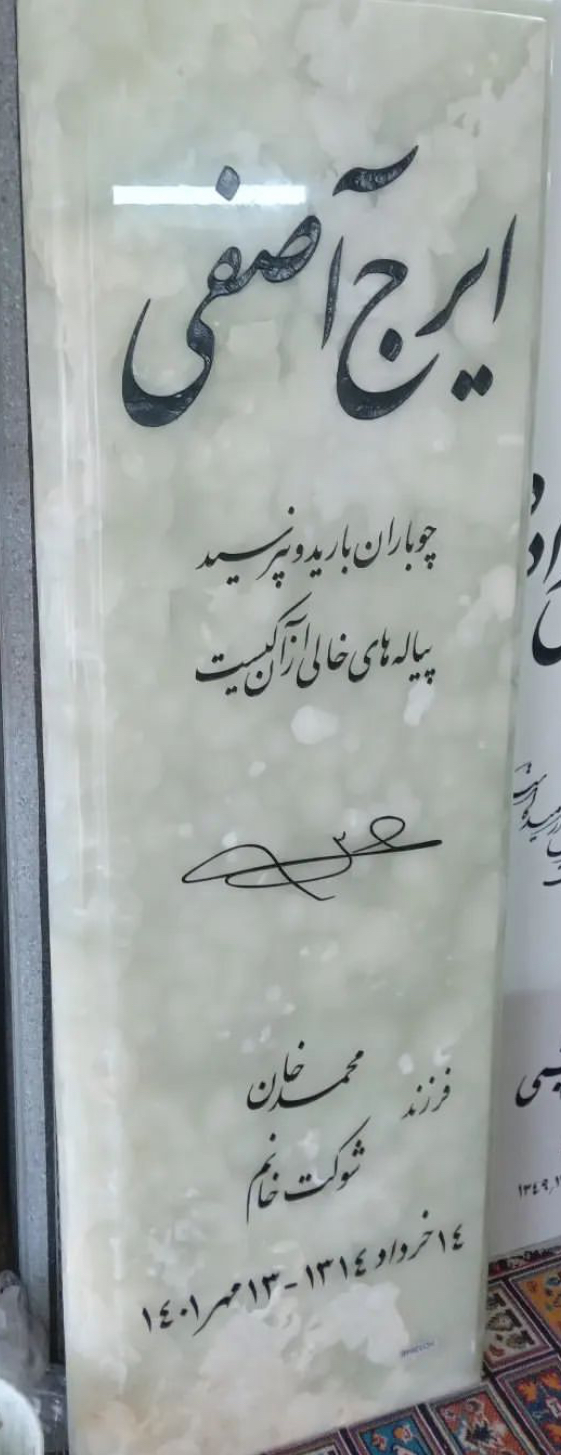 ایرج آصفی
چو باران بارید و نپرسید
پیاله های خالی از آن کیست
فرزند
محمد خان
شوکت خانم
۱۴ خرداد ۱۳۱۴ - ۱۳ مهر ۱۴۰۱